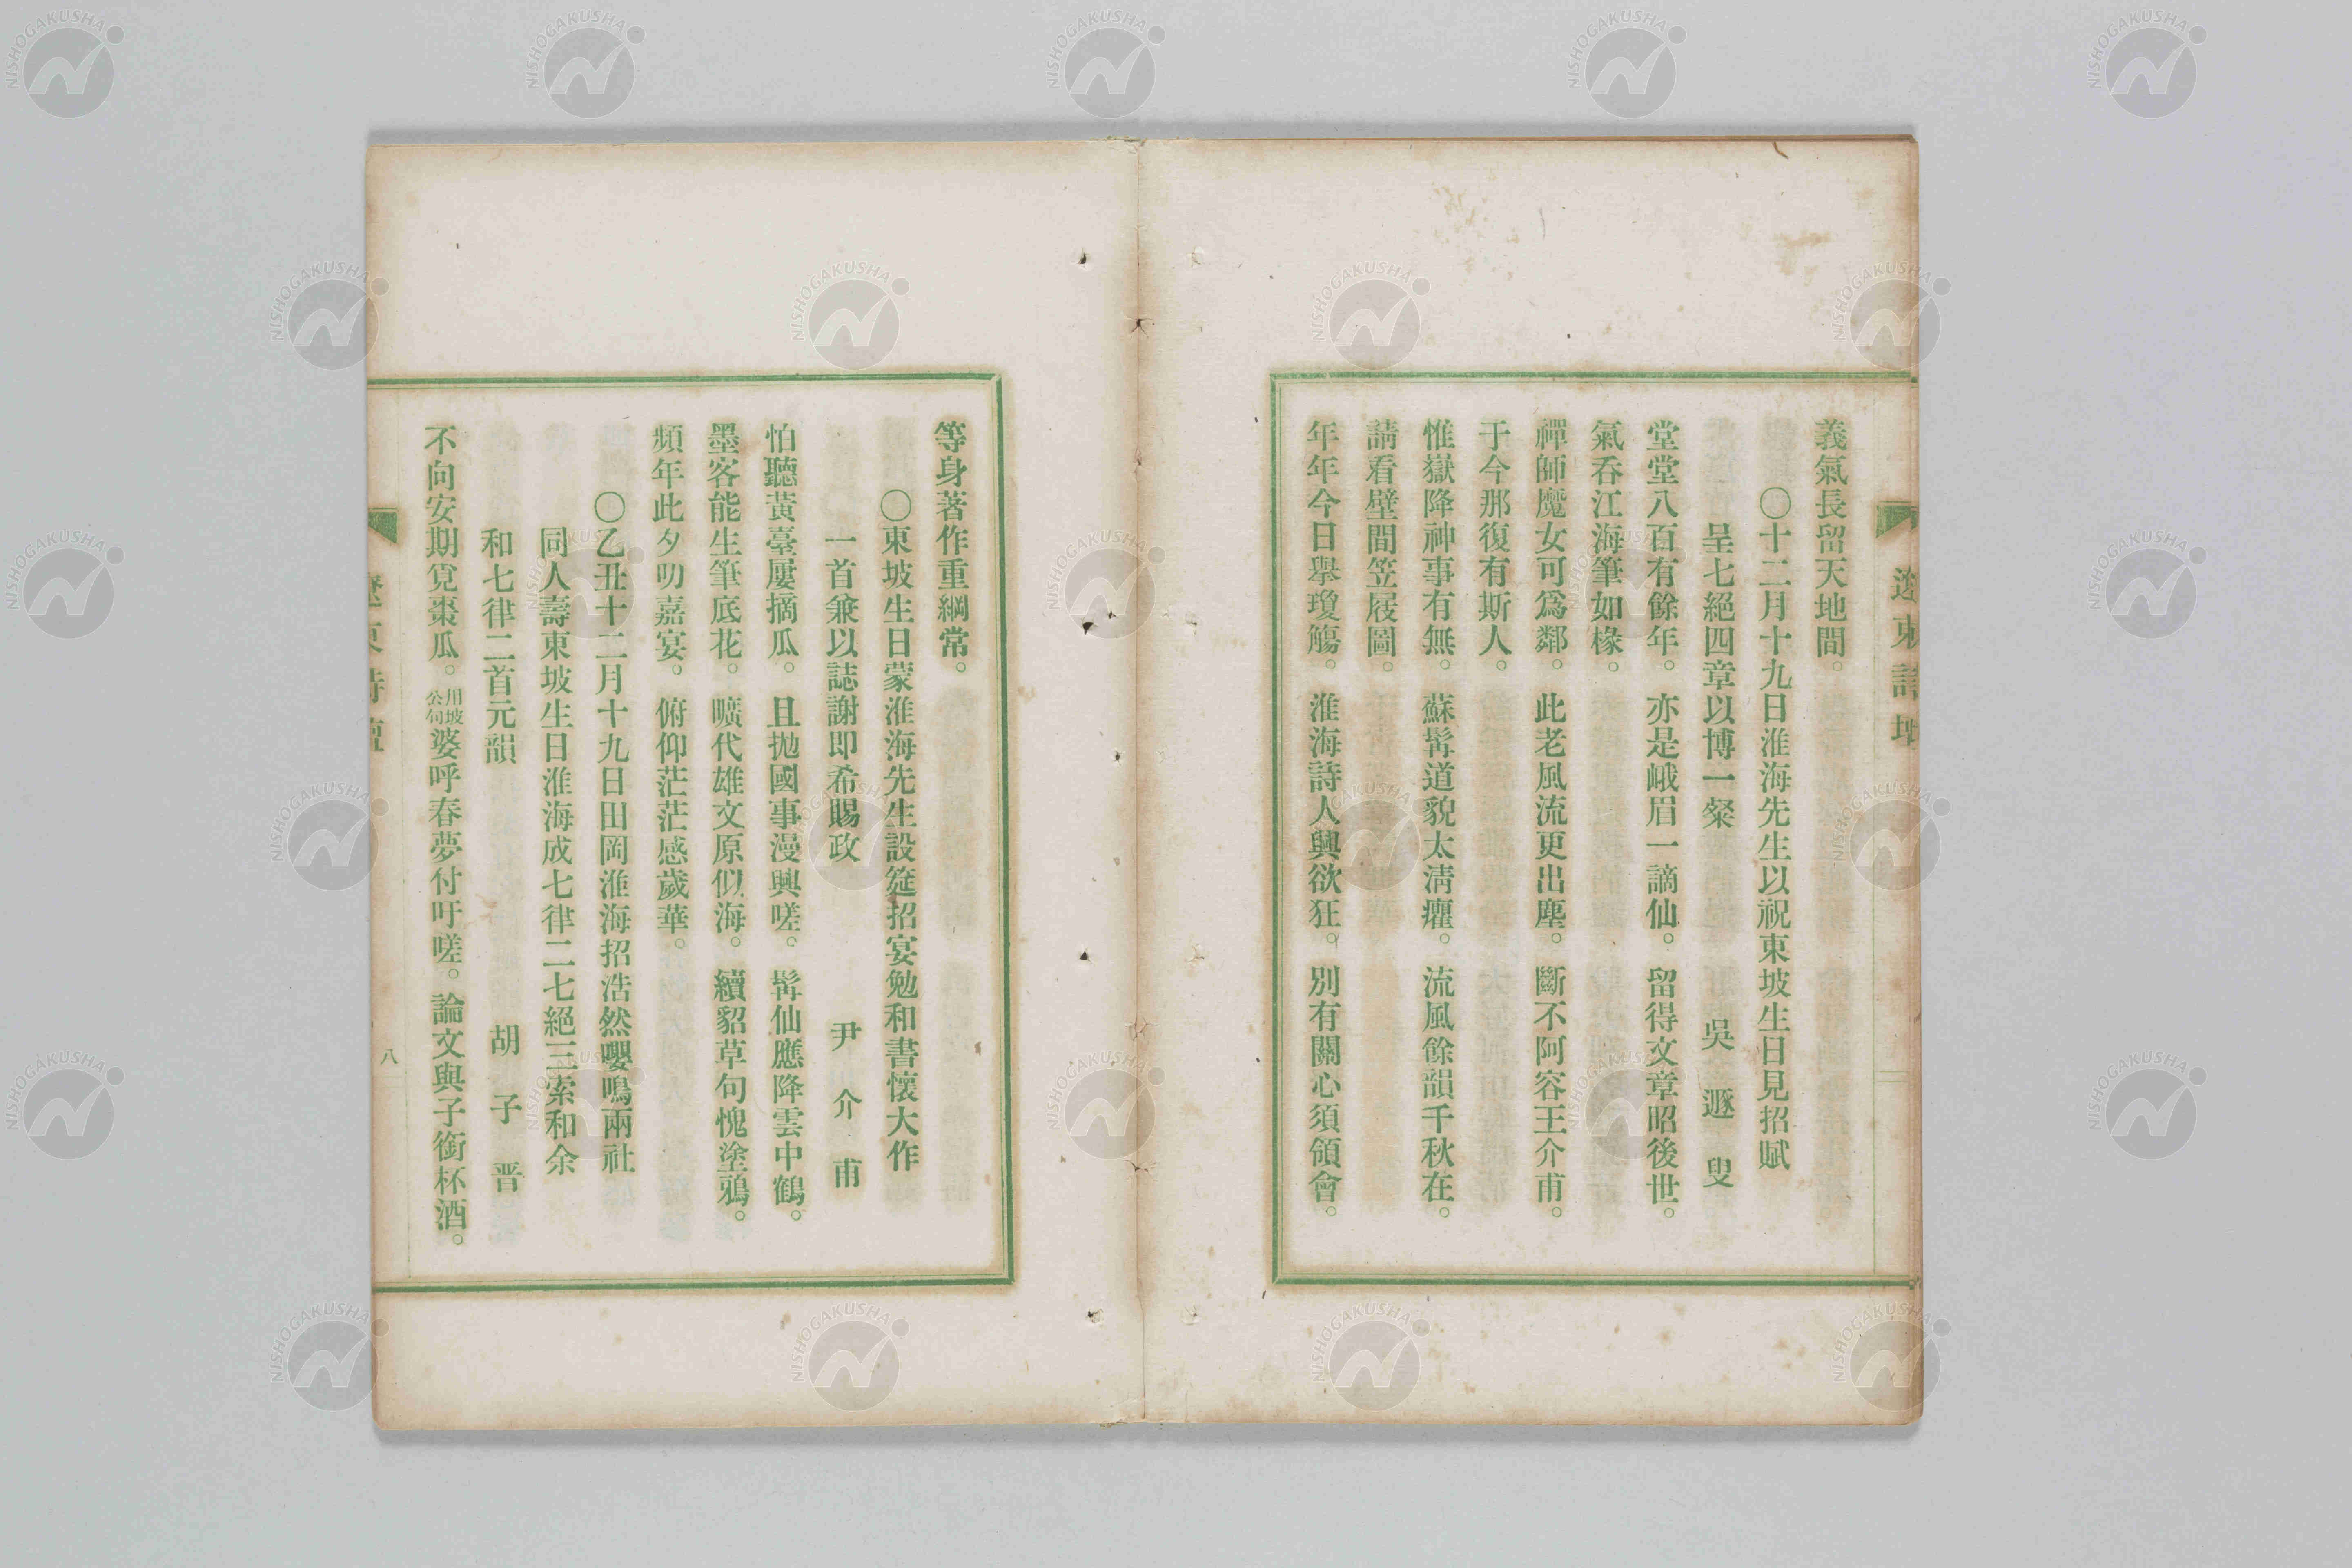 遼東詩壇
義氣長留天地間。
○十二月十九日淮海先生以祝東坡生日見招賦
呈七絕四章以博一粲　吳遯叟
堂堂八百有餘年。亦是峨眉一謫仙。留得文章昭後世。
氣吞江海筆如椽。
禪師魔女可爲鄰。此老風流更出塵。斷不阿容王介甫。
于今那復有斯人。
惟嶽降神事有無。蘇髯道貌太淸癯。流風餘韻千秋在。
請看壁間笠屐圖。
年年今日擧瓊觴。淮海詩人興欲狂。別有關心須領會。
等身著作重綱常。
○東坡生日蒙淮海先生設筵招宴勉和書懷大作
一首兼以誌謝即希賜政　尹介甫
怕聽黃臺屢摘瓜。且拋國事漫興嗟。髯仙應降雲中鶴。
墨客能生筆底花。曠代雄文原似海。續貂草句愧塗鴉。
頻年此夕叨嘉宴。俯仰茫茫感歲華。
○乙丑十二月十九日田岡淮海招浩然嚶鳴兩社
同人壽東坡生日淮海成七律二七絕三索和余
和七律二首元韻　胡子晋
不向安期覓棗瓜。用坡公句婆呼春夢付吁嗟。論文與子銜杯酒。
遼東詩壇
八
NISHOGAKUSHA